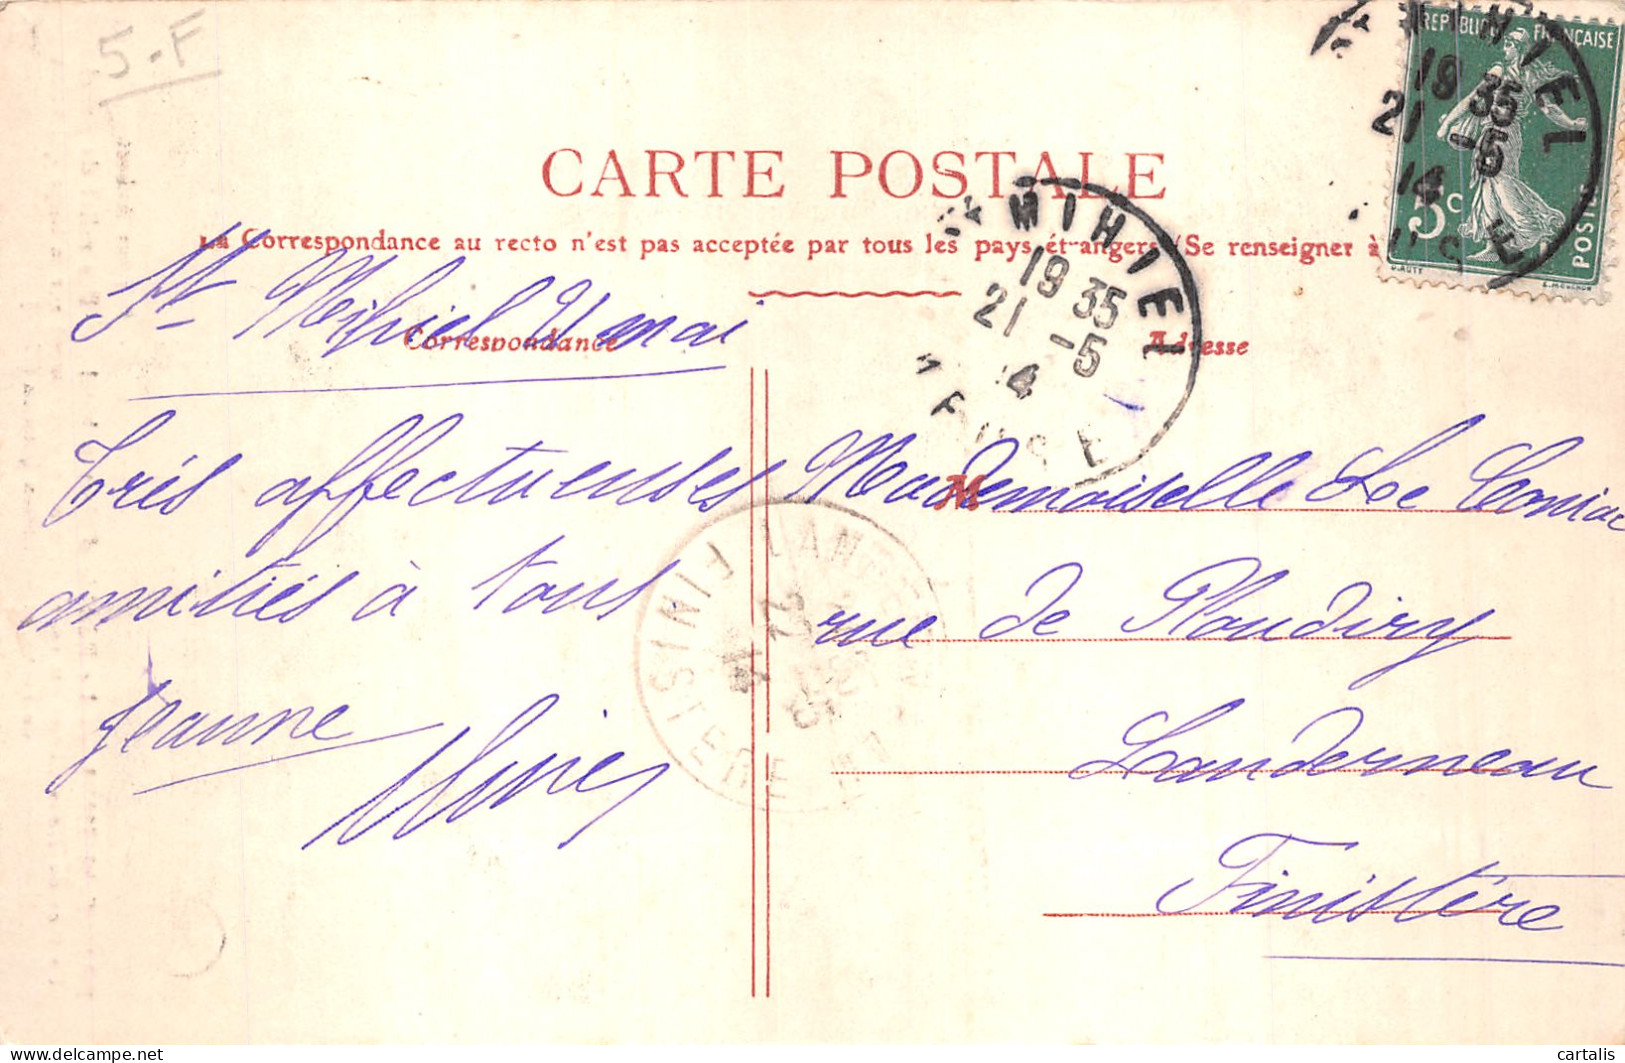 5-F
REPUBLIQUE FRANÇAISE
5c
POSTES
19 35
21 -5
14
CARTE POSTALE
La Correspondance au recto n'est pas acceptée par tous les pays étrangers (Se renseigner à
St MIHIEL
19 35
21 -5
14
MEUSE
St Mihiel 21 mai
Correspondance
Adresse
Très affectueuses
amitiés à tous
Jeanne
M
Mademoiselle Le
rue de Ploudiry
Landerneau
Finistère
FINISTERE
22
14
cartalis